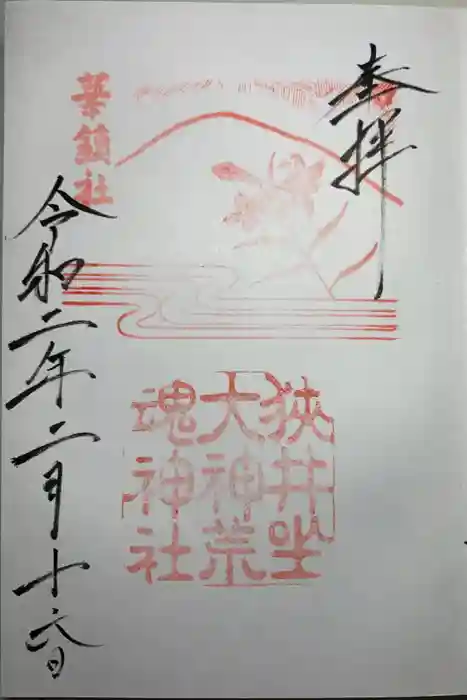 奉拝
華鎮社
狭井坐
大神荒
魂神社
令和二年二月十六日